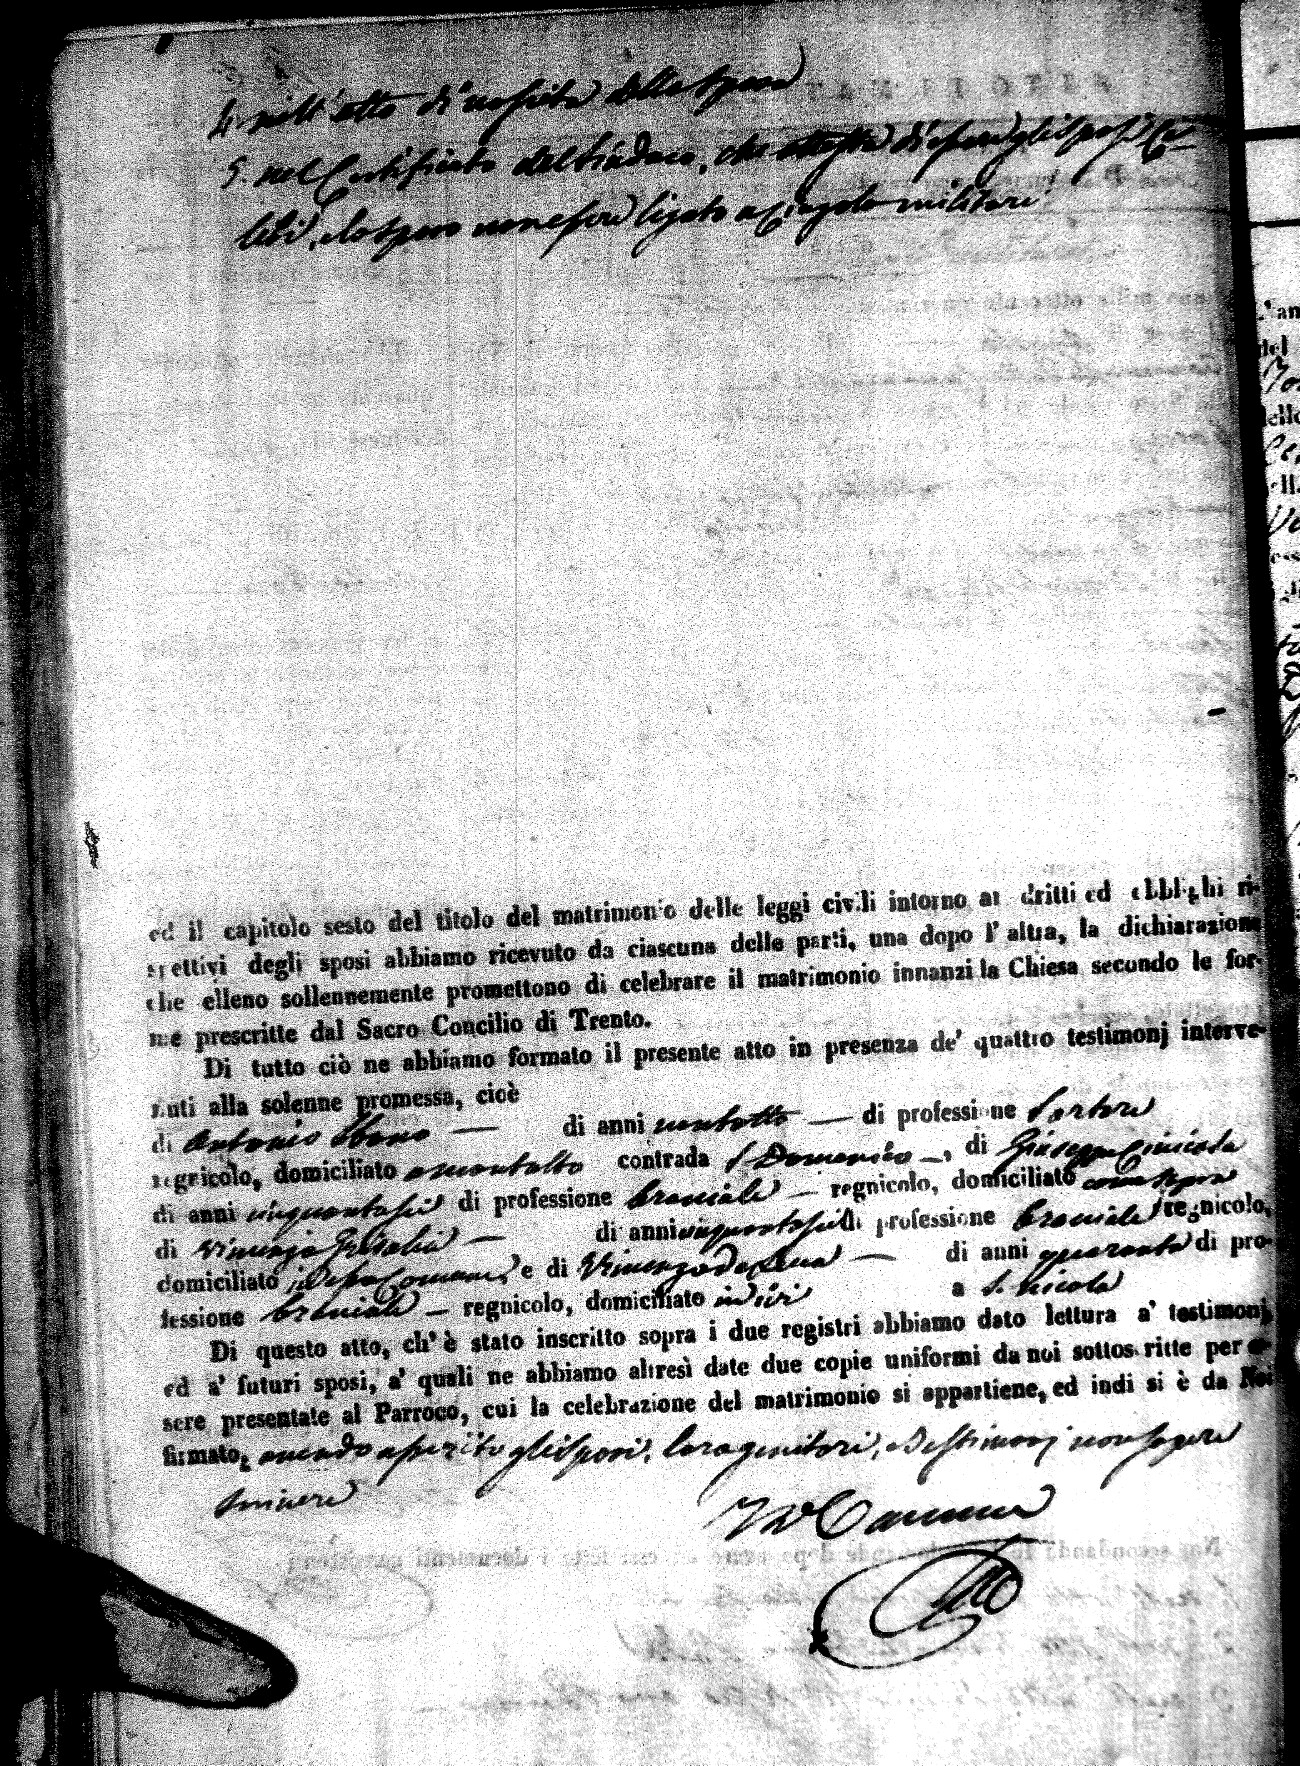 4. nell'atto di nascita della sposa
5. nel Certificato del Sindaco, che attesta di essere gli sposi Ce-
libi, e lo sposo non essere ligato a Cingolo militare
ed il capitolo sesto del titolo del matrimonio delle leggi civili intorno ai dritti ed obblighi ri-
spettivi degli sposi abbiamo ricevuto da ciascuna delle parti, una dopo l'altra, la dichiarazione
che elleno sollennemente promettono di celebrare il matrimonio innanzi la Chiesa secondo le for-
me prescritte dal Sacro Concilio di Trento.
Di tutto ciò ne abbiamo formato il presente atto in presenza de' quattro testimonj interve-
nuti alla solenne promessa, cioè
di Antonio di anni ventotto di professione Sartore
regnicolo, domiciliato a montalto contrada S. Domenico, di Giuseppe
di anni cinquantasei di professione bracciale regnicolo, domiciliato come sopra
di Vincenzo di anni cinquantasei di professione bracciale regnicolo,
domiciliato e di Vincenzo de Luca di anni quaranta di pro-
fessione bracciale regnicolo, domiciliato indivi a S. Nicola
Di questo atto, ch'è stato inscritto sopra i due registri abbiamo dato lettura a' testimonj,
ed a' futuri sposi, a' quali ne abbiamo altresì date due copie uniformi da noi sottoscritte per es-
sere presentate al Parroco, cui la celebrazione del matrimonio si appartiene, ed indi si è da Noi
firmato, avendo asserito gli sposi, loro genitori, e testimonj non sapere
scrivere